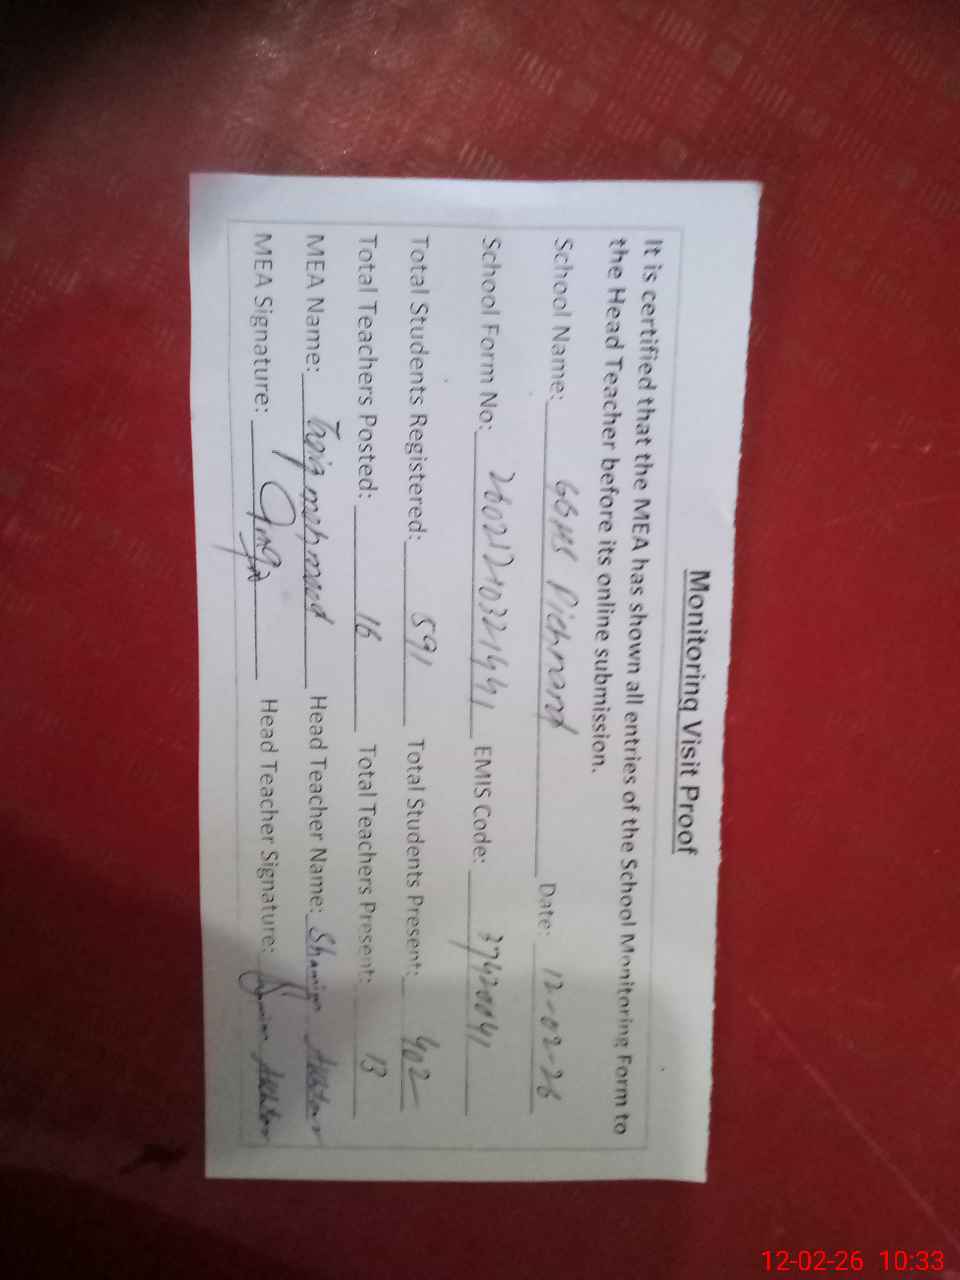 Monitoring Visit Proof
It is certified that the MEA has shown all entries of the School Monitoring Form to
the Head Teacher before its online submission.
School Name: GGHS Pichnand Date: 12-02-26
School Form No: EMIS Code: 37420041
Total Students Registered: 591 Total Students Present: 402
Total Teachers Posted: 16 Total Teachers Present: 13
MEA Name: mehmood Head Teacher Name: Shamim Akhtar
MEA Signature: Head Teacher Signature: Shamim Akhtar
12-02-26 10:33